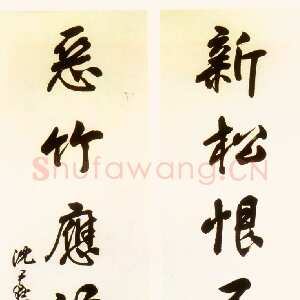 新松恨
惡竹應
沈
Shufawang.CN